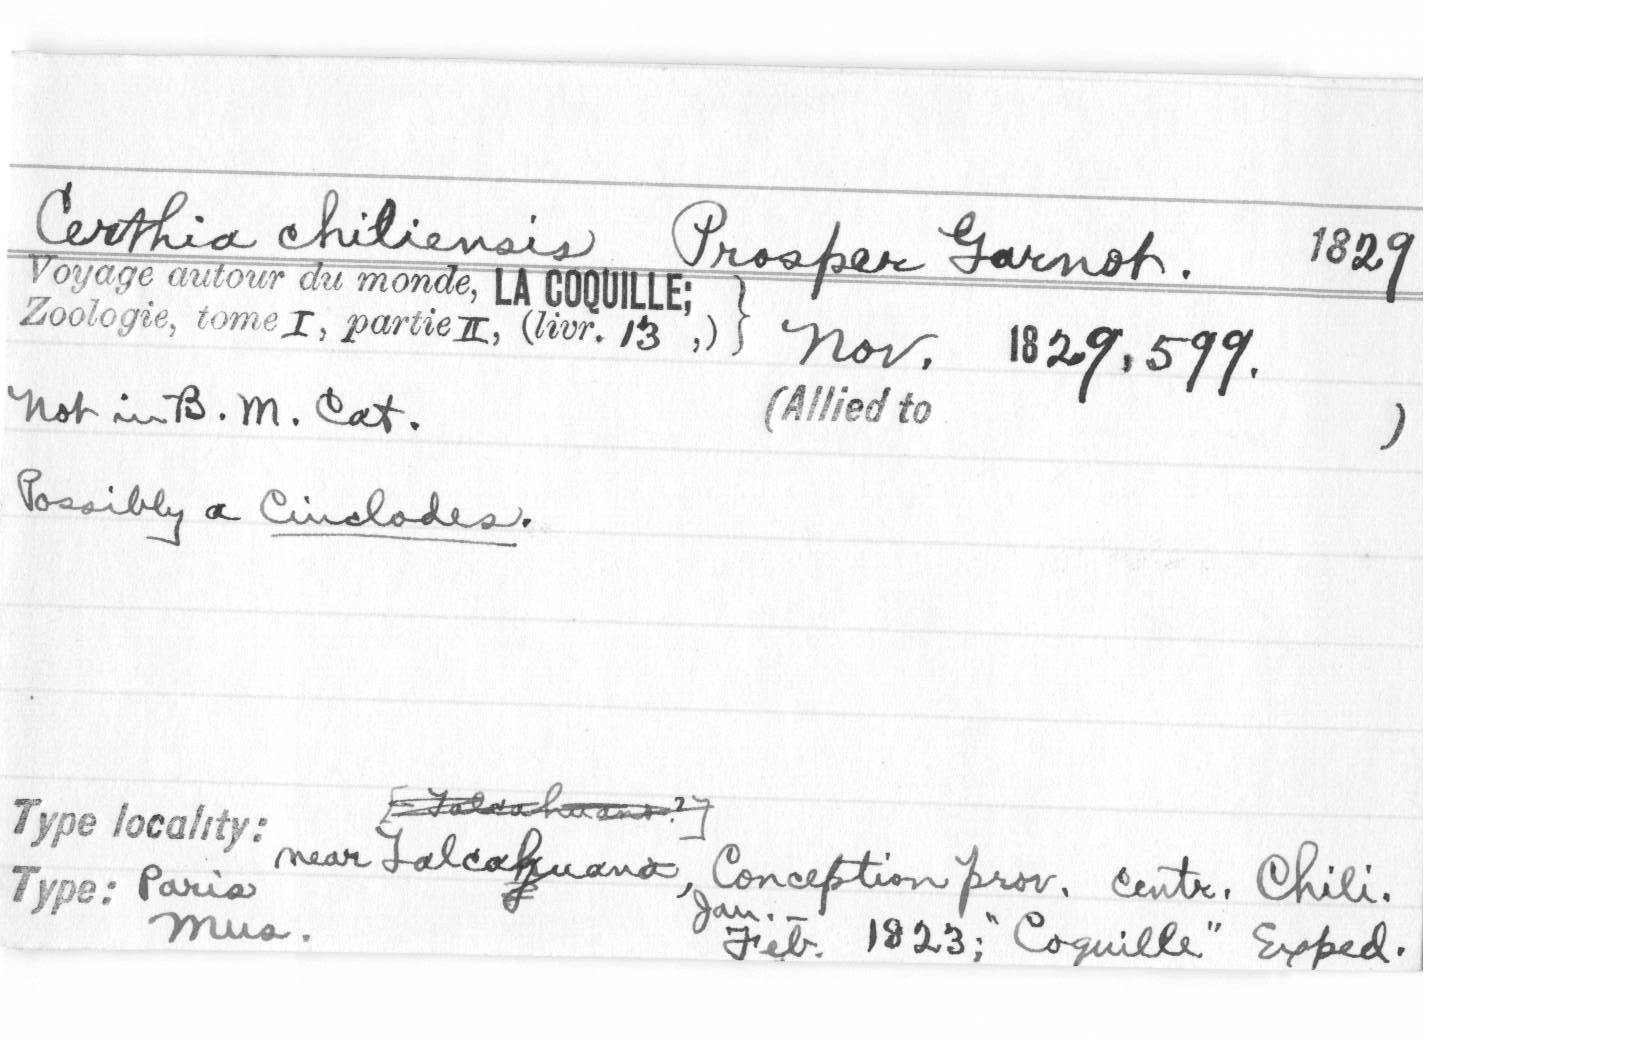 Certhia chiliensis Prosper Garnot. 1829
Voyage autour du monde, LA COQUILLE;
Zoologie, tome I, partie II, (livr. 13 ,) } Nov. 1829, 599.
Not in B. M. Cat. (Allied to )
Possibly a Cinclodes.
Type locality: [Talcahuano?]
near Talcahuano, Conception prov. centr. Chili.
Type: Paris Mus.
Jan. – Feb. 1823; "Coquille" Exped.